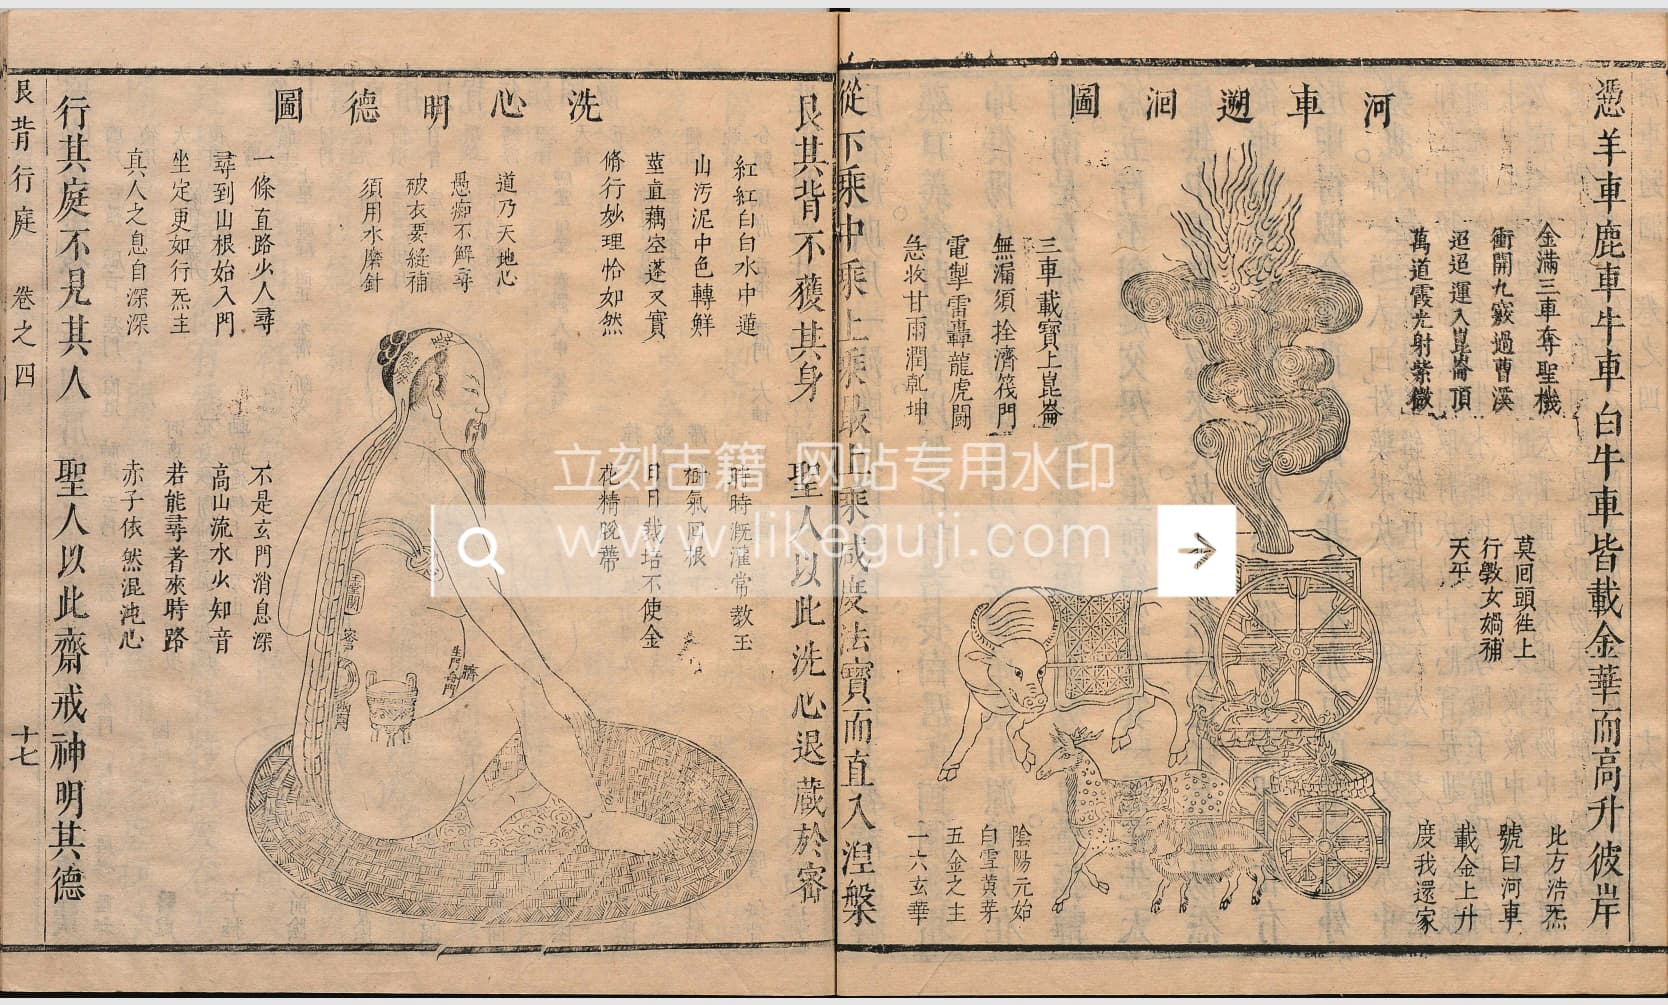 河車遡洄圖
憑羊車鹿車牛車白牛車皆載金華而高升彼岸
金滿三車奪聖機
衝開九竅過曹溪
迢迢運入崑崙頂
萬道霞光射紫微
三車載寶上崑崙
無漏須拴濟筏門
電掣雷轟龍虎鬪
急收甘雨潤乾坤
莫回頭徃上
行敎女媧補
天平
北方浩炁
號曰河車
載金上升
度我還家
陰陽元始
白雪黃芽
五金之主
一六玄華
從下乘中乘上乘最上乘滅度法寶而直入涅槃
洗心明德圖
艮其背不獲其身
聖人以此洗心退藏於密
紅紅白白水中蓮
山汚泥中色轉鮮
莖直藕空蓬又實
脩行妙理恰如然
時時溉灌常教玉
樹氣回根
日日栽培不使金
花精脫蒂
道乃天地心
愚痴不解尋
破衣要縫補
須用水磨針
一條直路少人尋
尋到山根始入門
坐定更如行炁主
真人之息自深深
不是玄門消息深
高山流水火知音
若能尋著來時路
赤子依然混沌心
行其庭不見其人
聖人以此齋戒神明其德
艮背行庭 卷之四 十七
臍
生門
立刻古籍 网站专用水印
www.likeguji.com